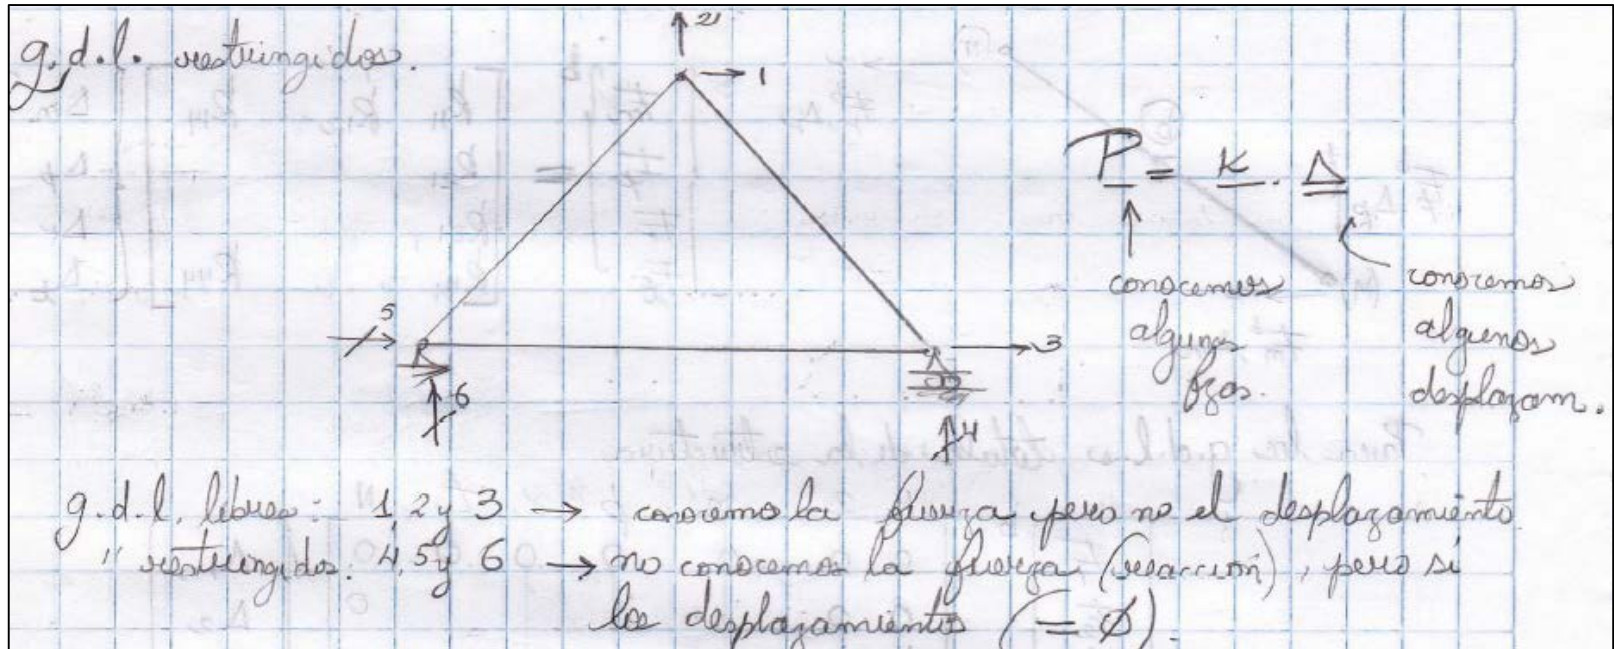 g.d.l. restringidos.
2
1
P = K . Δ
conocemos algunas fzas.
conocemos algunos desplazam.
5
6
3
4
g.d.l. libres: 1, 2 y 3 → conocemos la fuerza pero no el desplazamiento
" restringidos: 4, 5 y 6 → no conocemos la fuerza (reacción), pero sí
los desplazamientos (= Ø).